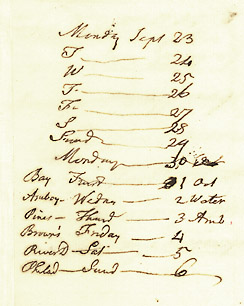 Monday Sept 23
T 24
W 25
T 26
Fr 27
S 28
Sund 29
Monday 30
Bay 1 Oct
Amboy - Wednes 2 Water
Pines - Thurd 3 Amb.
Browns Friday 4
River D Sat 5
Philad Sund 6